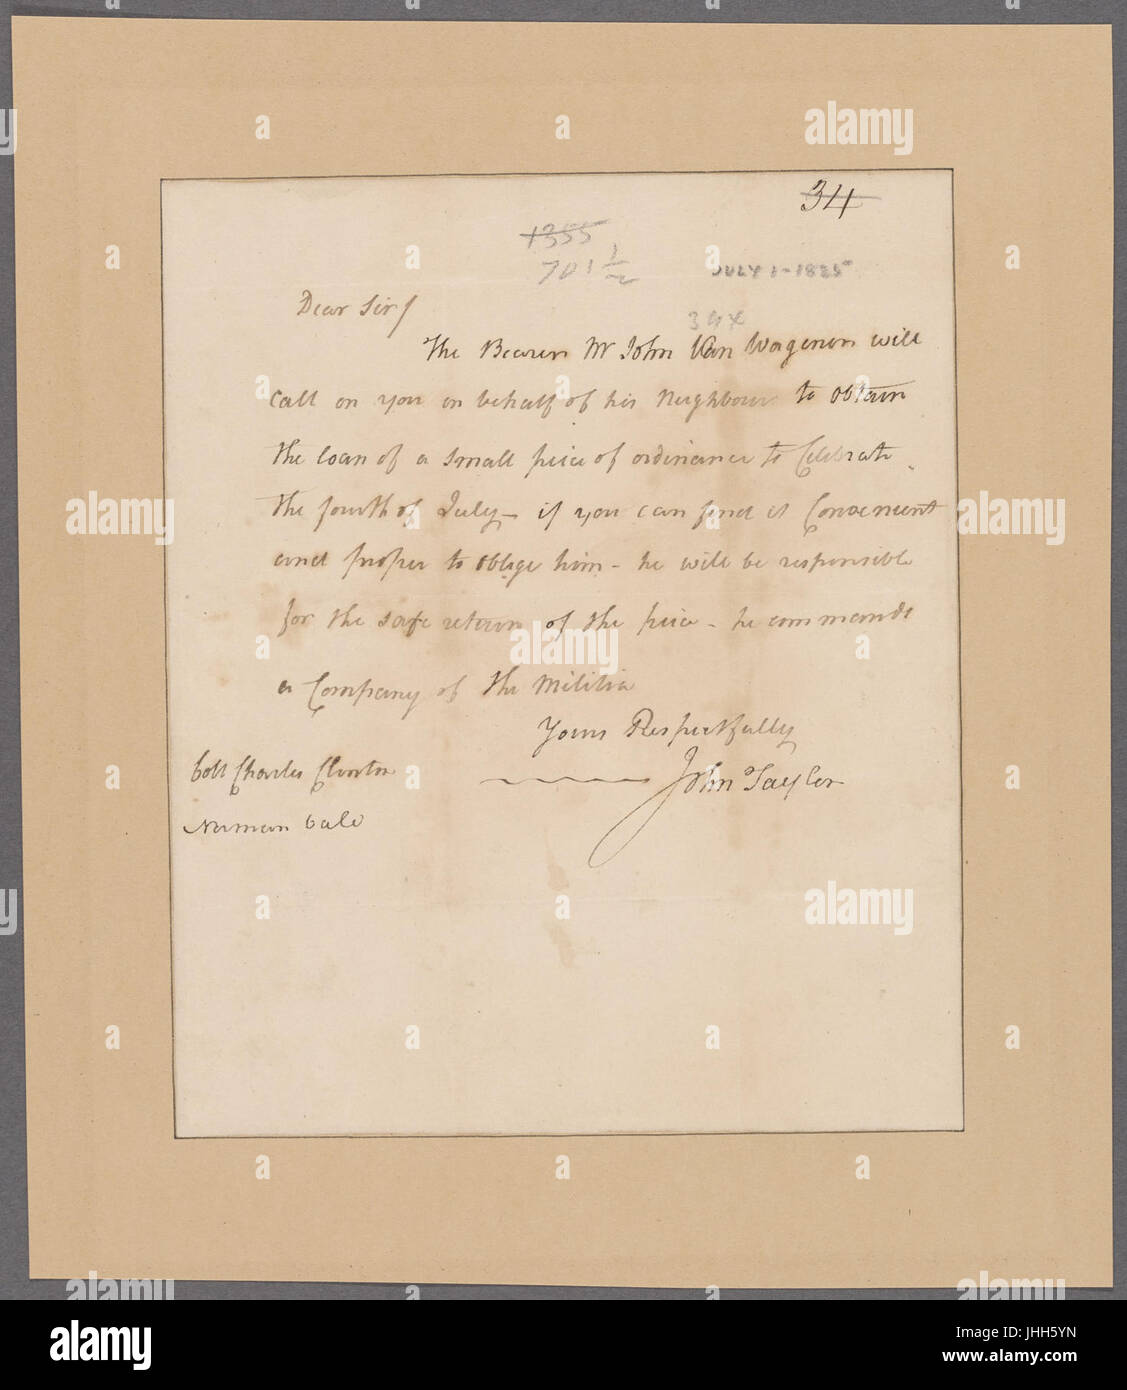 34
1355
701 1/2
JULY 1-1825
34x
Dear Sir/
The Bearer Mr John Van Wagenen will
call on you on behalf of his Neighbours to obtain
the loan of a small piece of ordinance to Celebrate
the fourth of July – if you can find it Convenient
and proper to oblige him – he will be responsible
for the safe return of the piece – he commands
a Company of the Militia
Yours Respectfully
John Tayler
Coll Charles Clinton
alamy
a
alamy
Image ID: JHH5YN
www.alamy.com